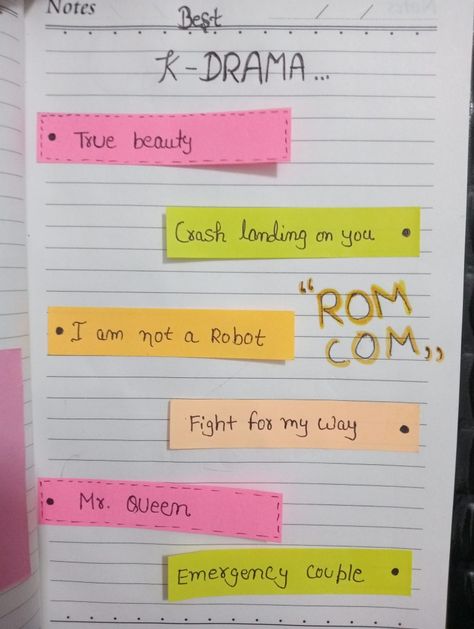 Notes
Best
K-DRAMA...
True beauty
Crash landing on you
I am not a Robot
"ROM
COM„
Fight for my way
Mr. Queen
Emergency couple